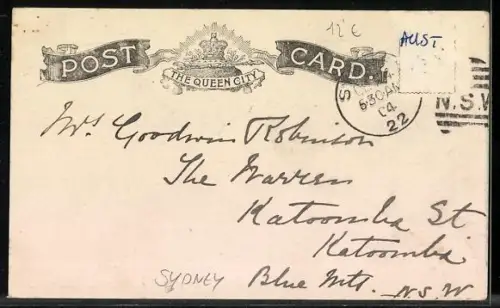 12 €
AUST.
POST CARD.
THE QUEEN CITY
S
6 30 AM
04
22
N.S.W
Mrs Goodwin Robinson
The Warren
Katoomba St
Katoomba
Blue Mts. N.S.W
SYDNEY